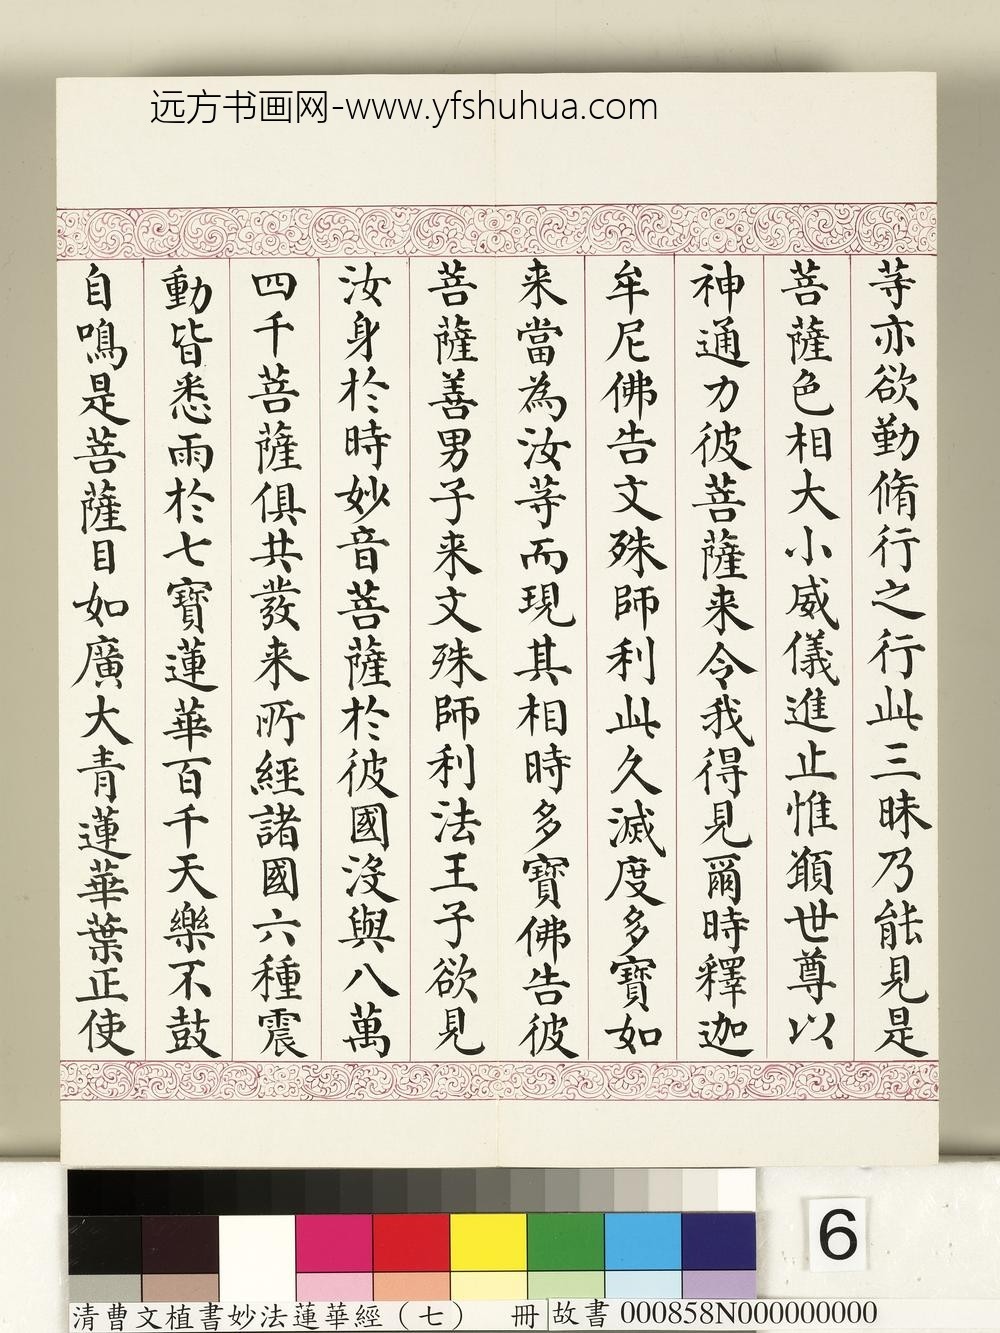 远方书画网-www.yfshuhua.com
等亦欲勤脩行之行此三昧乃能見是
菩薩色相大小威儀進止惟願世尊以
神通力彼菩薩来令我得見爾時釋迦
牟尼佛告文殊師利此久滅度多寶如
来當為汝等而現其相時多寶佛告彼
菩薩善男子来文殊師利法王子欲見
汝身於時妙音菩薩於彼國沒與八萬
四千菩薩俱共發来所經諸國六種震
動皆悉雨於七寶蓮華百千天樂不鼓
自鳴是菩薩目如廣大青蓮華葉正使
6
清曹文植書妙法蓮華經（七） 冊 故書 000858N000000000